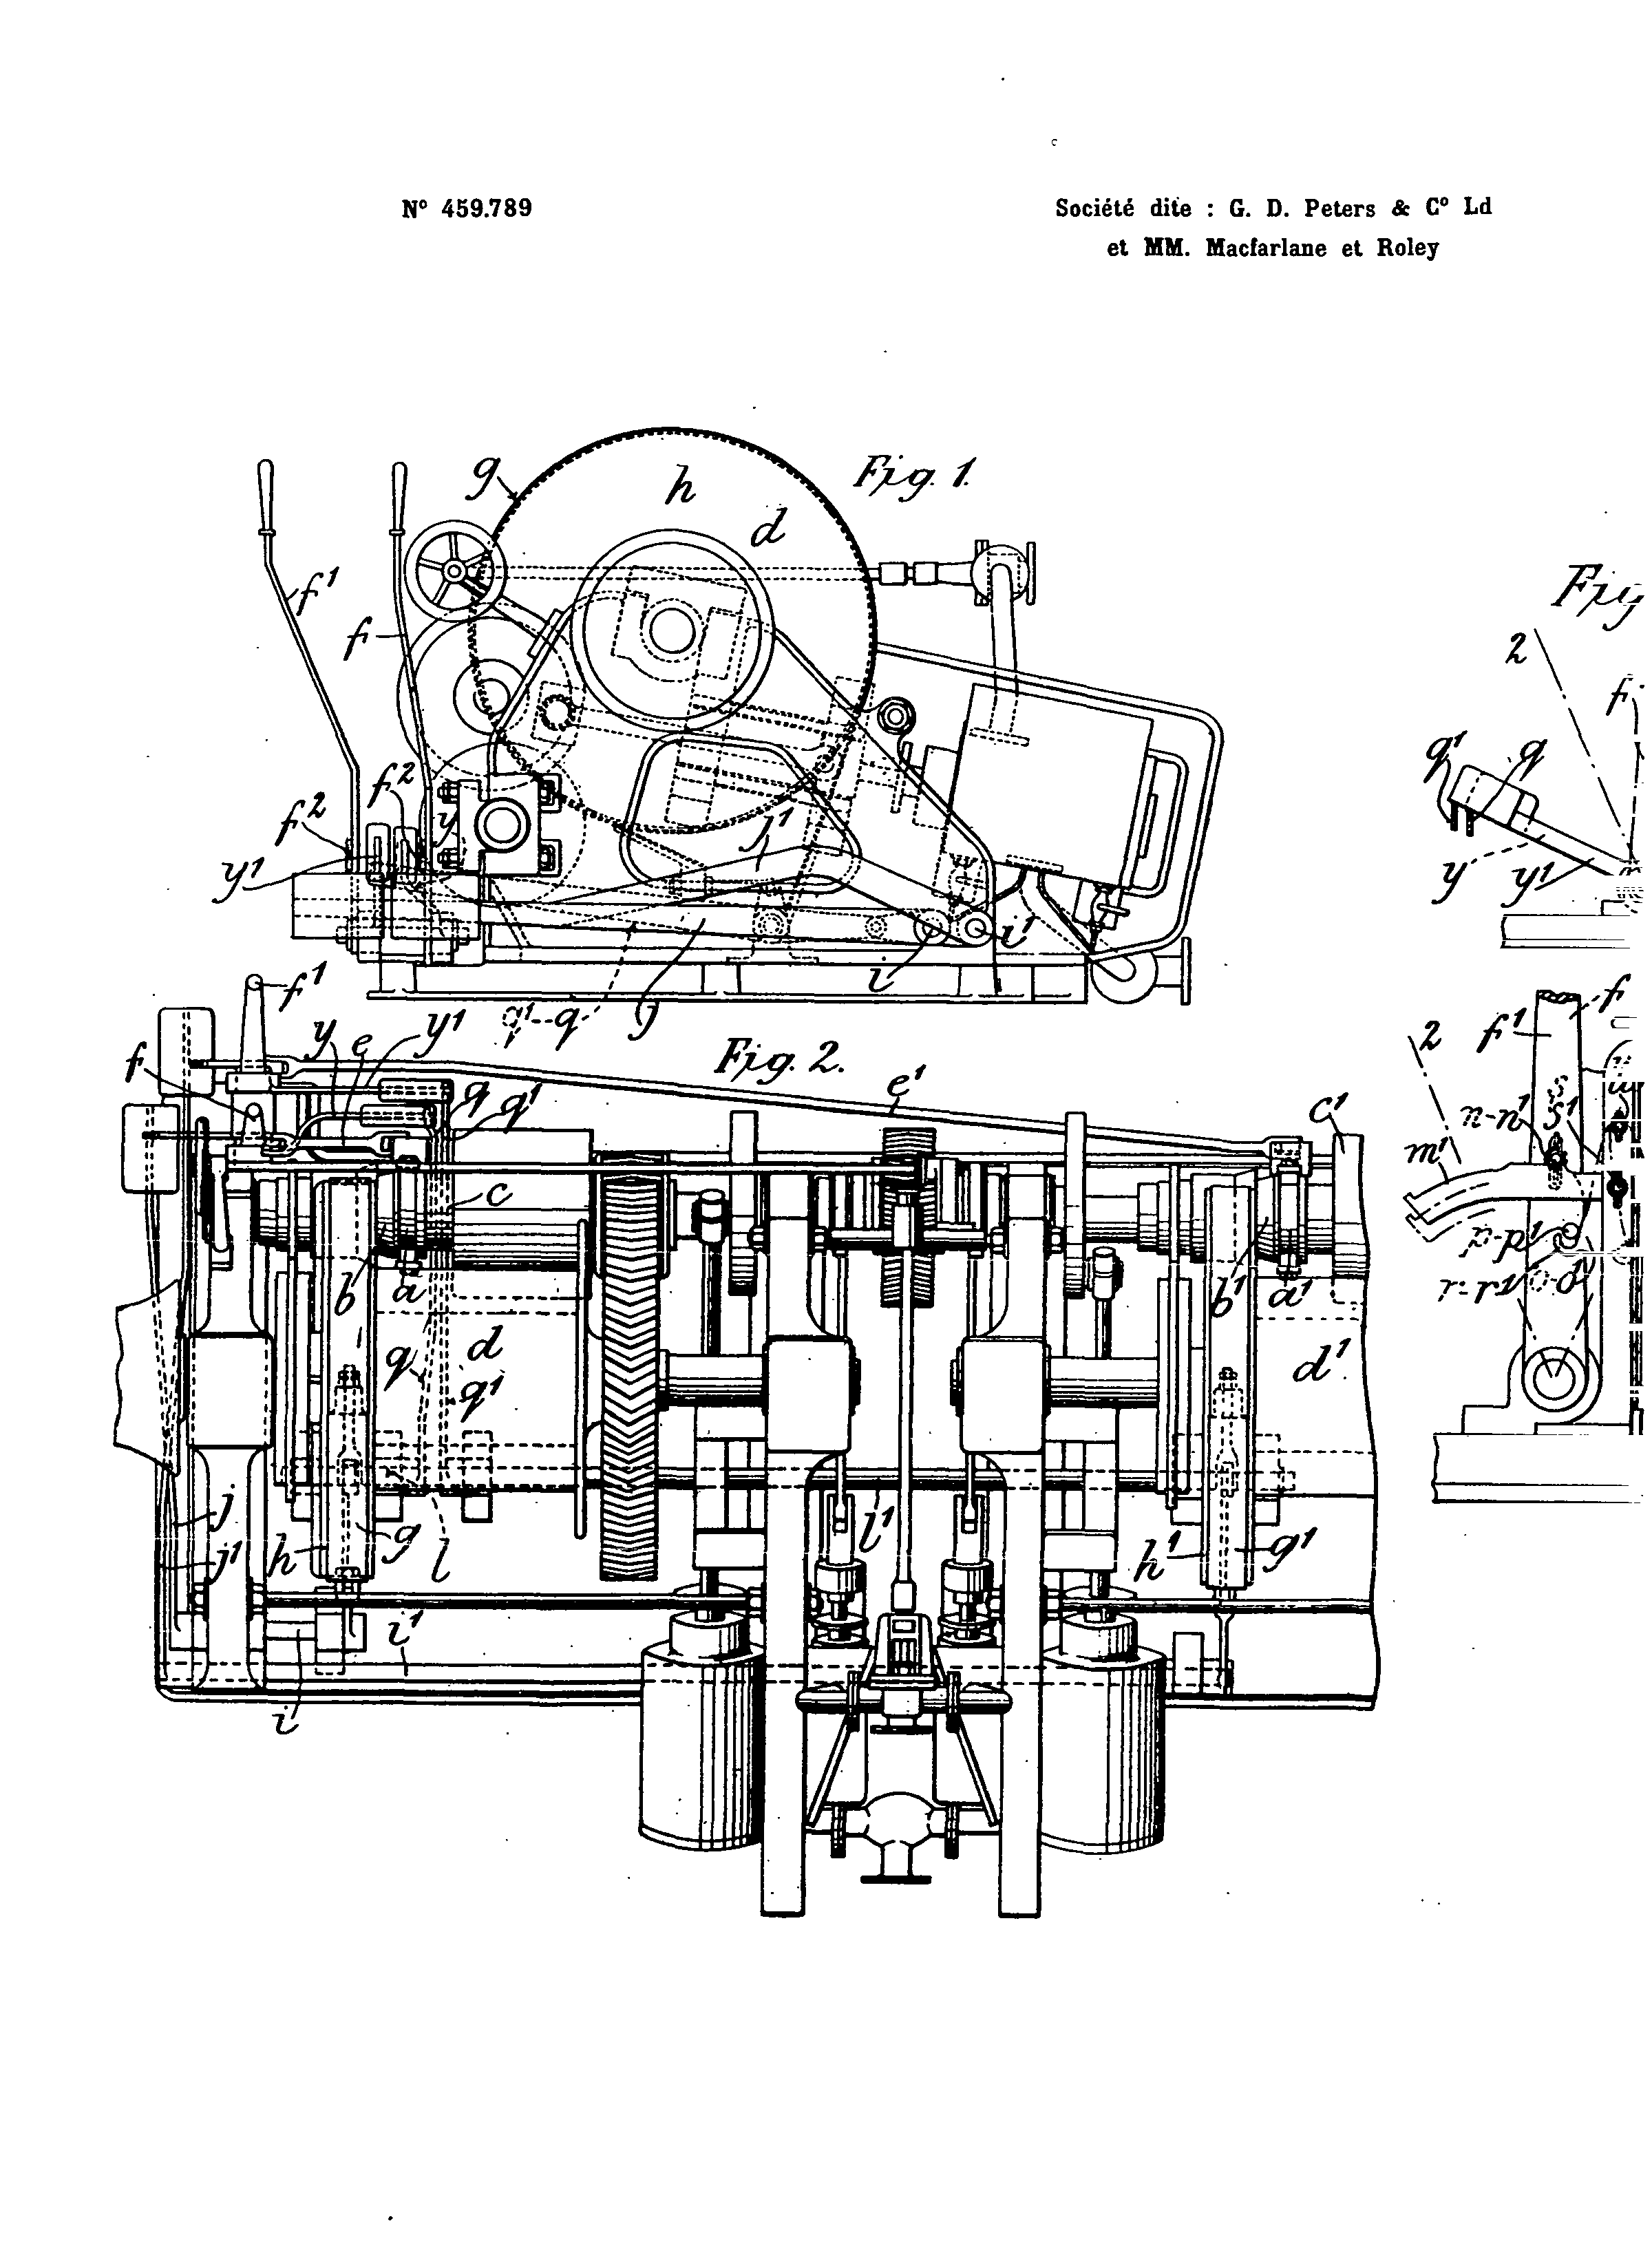 Nº 459.789
Société dite : G. D. Peters & Cº Ld
et MM. Macfarlane et Roley
Fig. 1.
g
h
d
f¹
f
f²
f²
y
y¹
j¹
i
i¹
q¹-q
j
Fig. 2.
f¹
f
y
e
y¹
q
q¹
e¹
c¹
c
b
a
b¹
a¹
d
q
q¹
d¹
j
j¹
h
g
l
l¹
h¹
g¹
i¹
i
2
f
q¹
q
y
y¹
f¹
f
2
s
n-n¹
s¹
m¹
p-p¹
r-r¹